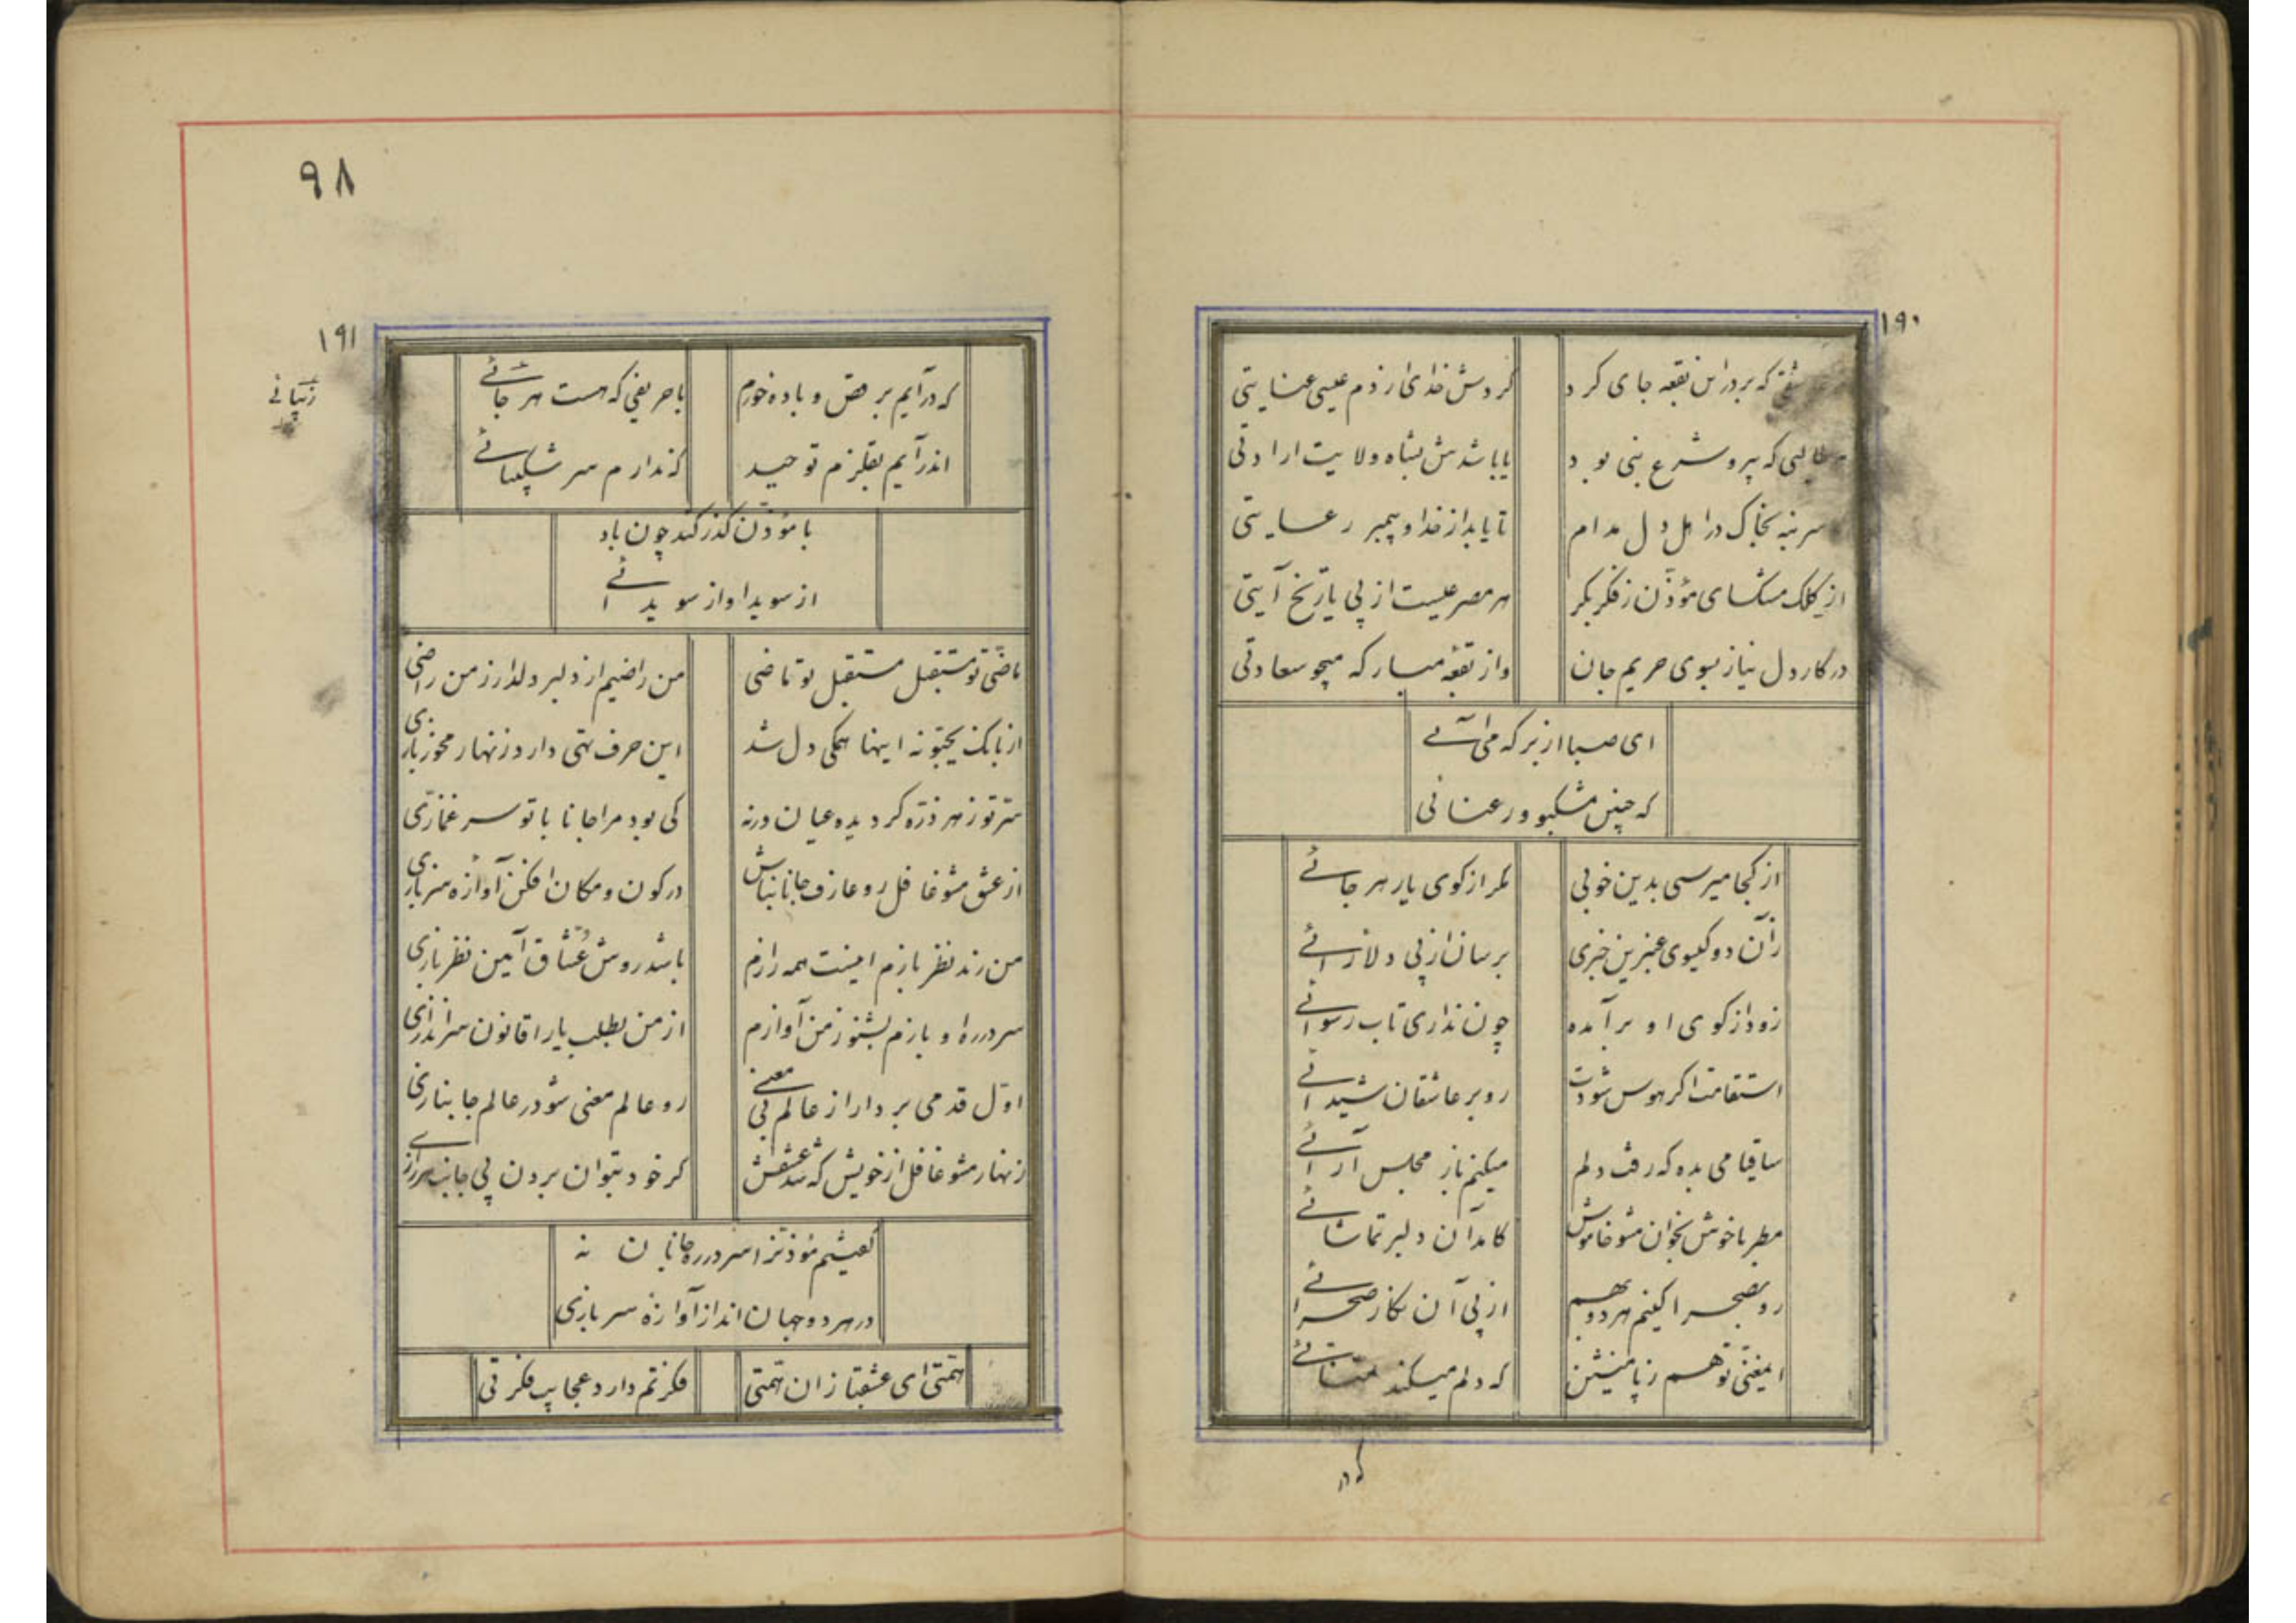 ۱۹۰
که بر در این بقعه جای کرد
کردش خدای از دم عیسی عنایتی
طالبی که پیرو شرع نبی بود
یا باشدش بشاه ولایت ارادتی
سر نه بخاک در اهل دل مدام
تا یابد از خدا و پیمبر رعایتی
از کلک مشکسای مؤذن ز فکر بکر
هر مصرعیست از پی تاریخ آیتی
در کار دل نیاز بسوی حریم جان
و از بقعه مبارکه میجو سعادتی
ای صبا از بر که می آئی
که چنین مشکبو و رعنائی
از کجا میرسی بدین خوبی
مگر از کوی یار هر جائی
زآن دو گیسوی عنبرین خبری
برسان از پی دلارائی
زود از کوی او برآمده
چون نداری تاب رسوائی
استقامت اگر هوس شودت
رو بر عاشقان شیدائی
ساقیا می بده که رفت دلم
میکنم باز مجلس آرائی
مطربا خوش بخوان مشو خاموش
کامد آن دلبر تماشائی
رو بصحرا کنیم هر دو بهم
از پی آن نگار صحرائی
ایمغنی تو هم ز پا منشین
که دلم میکند تمنائی
که در
۹۸
۱۹۱
که درآیم برقص و باده خورم
با حریفی که هست هر جائی
اندرآیم بقلزم توحید
که ندارم سر شکیبائی
با مؤذن گذر کند چون باد
از سویدا و از سویدائی
ماضی تو مستقبل مستقبل تو ماضی
من راضیم از دلبر دلدار ز من راضی
از بانک یحبونه اینها همگی دل شد
این حرف تهی دارد زنهار مخور بازی
سر تو ز هر ذره گردیده عیان ورنه
کی بود مرا جانا با تو سر غمازی
از عشق مشو غافل رو عارف جانان باش
در کون و مکان افکن آوازه سربازی
من رند نظر بازم اینست همه رازم
باشد روش عشاق آیین نظربازی
سر در ره او بازم بشنو ز من آوازم
از من بطلب یارا قانون سراندازی
اول قدمی بردار از عالم بی معنی
رو عالم معنی شو در عالم جانبازی
زنهار مشو غافل از خویش که شد عشقش
گر خود بتوان بردن پی جانب هر رازی
گفتیم مؤذن را سر در ره جانان نه
در هر دو جهان انداز آوازه سربازی
همتی ای عشقبازان همتی
فکرتم دارد عجایب فکرتی